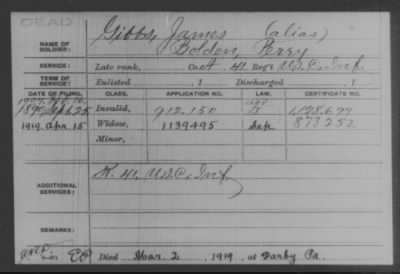 DEAD
Gibbs, James (alias)
NAME OF SOLDIER: Bolden, Perry
SERVICE: Late rank, Co. A 41 Reg't U.S.C. Inf.
TERM OF SERVICE: Enlisted 1 Discharged 1
DATE OF FILING. CLASS. APPLICATION NO. LAW. CERTIFICATE NO.
1907
Sept 25 Invalid, 912.150 1128.677
1919 Apr. 15 Widow, 1139495 Sep. 873252
Minor,
ADDITIONAL SERVICES: K. 41, U.S.C. Inf
REMARKS:
Died Mar. 2, 1919, at Darby Pa.